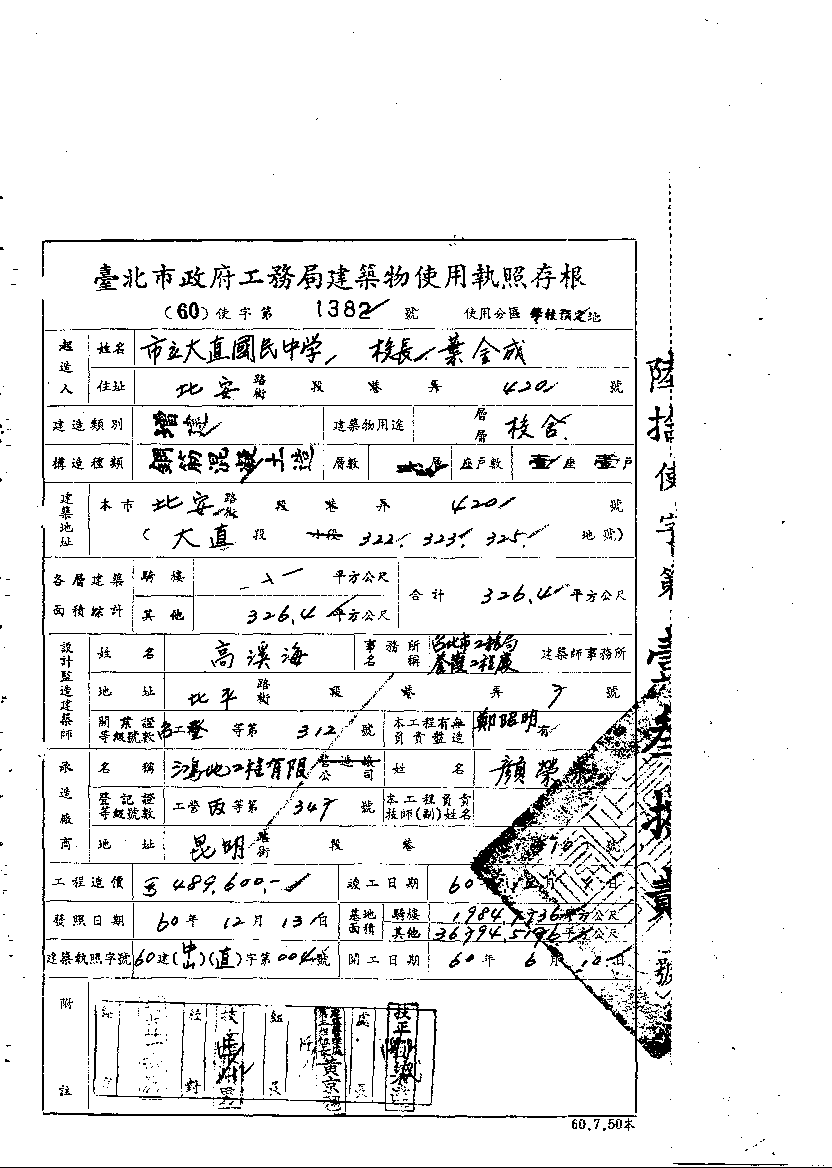 臺北市政府工務局建築物使用執照存根
(60)使字第 1382 號 使用分區 學校預定地
起造人 姓名 市立大直國民中学 校長 葉金成
住址 北安路街 段 巷 弄 420 號
建造類別 增建 建築物用途 層層 校舍
構造種類 鋼筋混凝土造 層數 層 座戶數 壹座 壹戶
建築地址 本市 北安路街 段 巷 弄 420 號
(大直段 小段 322. 323. 325. 地號)
各層建築面積綜計 騎樓 平方公尺 合計 326.4 平方公尺
其他 326.4 平方公尺
設計監造建築師 姓名 高溪海 事務所名稱 台北市工務局養護工程處 建築師事務所
地址 北平路街 段 巷 弄 7 號
開業證等級號數 工登 等第 312 號 本工程有無負責監造 鄭昭明 有
承造廠商 名稱 鴻地工程有限營造廠公司 姓名 顏榮
登記證等級號數 工營丙等第 347 號 本工程負責技師(副)姓名
地址 昆明路街 段 巷 號
工程造價 489,600.- 竣工日期 60年 月 日
發照日期 60年12月13日 基地面積 騎樓 平方公尺
其他 平方公尺
建築執照字號 60建(中山)(直)字第004號 開工日期 60年6月10日
附註
組長 處長
校對
黃京
60.7.50本
陸拾使字第壹叁捌貳號